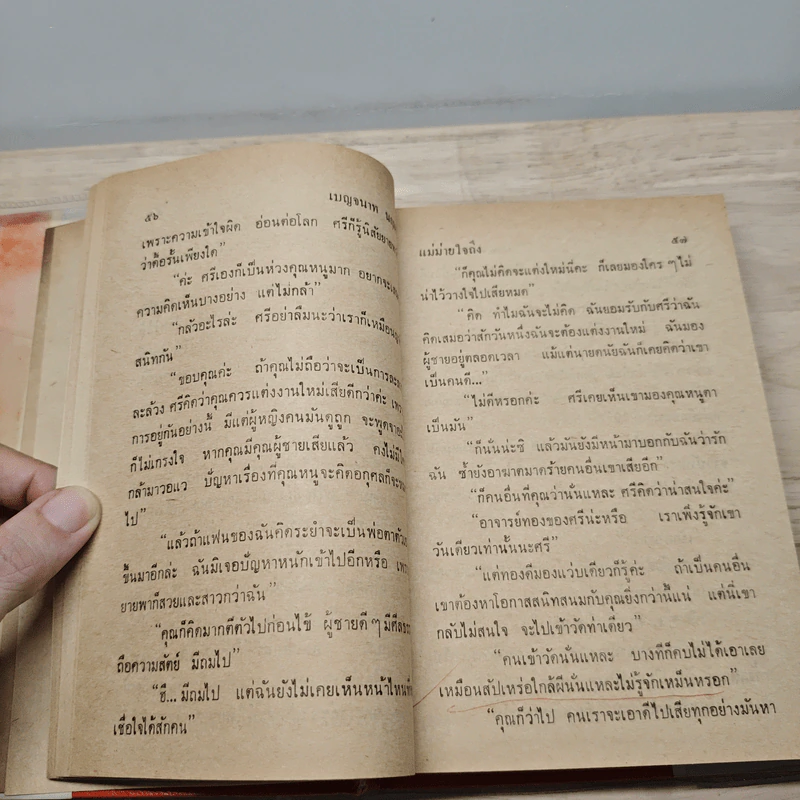 ๕๖
เบญจนาพ
เพราะความเข้าใจผิด อ่อนต่อโลก ศรีก็รู้นิสัย
ว่าดื้อรั้นเพียงใด”
“ค่ะ ศรีเองก็เป็นห่วงคุณหนูมาก อยากจะ
ความคิดเห็นบางอย่าง แต่ไม่กล้า”
“กลัวอะไรล่ะ ศรีอย่าลืมนะว่าเราก็เหมือน
สนิทกัน”
“ขอบคุณค่ะ ถ้าคุณไม่ถือว่าจะเป็นการ
ละล้วง ศรีคิดว่าคุณควรแต่งงานใหม่เสียดีกว่าค่ะ
การอยู่กันอย่างนี้ มีแต่ผู้หญิงคนมันดูถูก จะพูดจา
ก็ไม่เกรงใจ หากคุณมีคุณผู้ชายเสียแล้ว คงไม่มี
กล้ามาวอแว ปัญหาเรื่องที่คุณหนูจะคิดอกุศลก็จะ
ไป”
“แล้วถ้าแฟนของฉันคิดระยำจะเป็นพ่อตาตัว
ขึ้นมาอีกล่ะ ฉันมิเจอปัญหาหนักเข้าไปอีกหรือ
ยายพาก็สวยและสาวกว่าฉัน”
“คุณก็คิดมากตีตัวไปก่อนไข้ ผู้ชายดี ๆ มีศีล
ถือความสัตย์ มีถมไป”
“ฮึ... มีถมไป แต่ฉันยังไม่เคยเห็นหน้าไหน
เชื่อใจได้สักคน”
แม่ม่ายใจถึง
๕๗
“ก็คุณไม่คิดจะแต่งใหม่นี่คะ ก็เลยมองใคร ๆ ไม่
น่าไว้วางใจไปเสียหมด”
“คิด ทำไมฉันจะไม่คิด ฉันยอมรับกับศรีว่าฉัน
คิดเสมอว่าสักวันหนึ่งฉันจะต้องแต่งงานใหม่ ฉันมอง
ผู้ชายอยู่ตลอดเวลา แม้แต่นายดนัยฉันก็เคยคิดว่าเขา
เป็นคนดี...”
“ไม่ดีหรอกค่ะ ศรีเคยเห็นเขามองคุณหนูตา
เป็นมัน”
“ก็นั่นน่ะซิ แล้วมันยังมีหน้ามาบอกกับฉันว่ารัก
ฉัน ซ้ำยังอาฆาตมาดร้ายคนอื่นเขาเสียอีก”
“ก็คนอื่นที่คุณว่านั่นแหละ ศรีคิดว่าน่าสนใจค่ะ”
“อาจารย์ทองของศรีน่ะหรือ เราเพิ่งรู้จักเขา
วันเดียวเท่านั้นนะศรี”
“แต่ทองดีมองแว่บเดียวก็รู้ค่ะ ถ้าเป็นคนอื่น
เขาต้องหาโอกาสสนิทสนมกับคุณยิ่งกว่านี้แน่ แต่นี่เขา
กลับไม่สนใจ จะไปเข้าวัดท่าเดียว”
“คนเข้าวัดนั่นแหละ บางทีก็คบไม่ได้เอาเลย
เหมือนสัปเหร่อใกล้ผีนั่นแหละไม่รู้จักเหม็นหรอก”
“คุณก็ว่าไป คนเราจะเอาดีไปเสียทุกอย่างมันหา